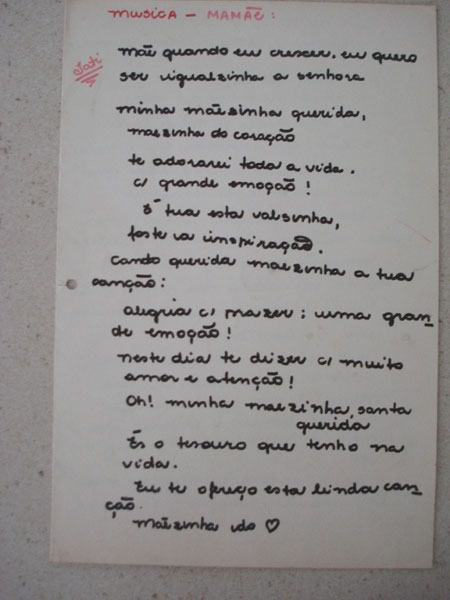 musica - MAMÃE:
Tati
mãe quando eu crescer, eu quero
ser iigualzinha a senhora
minha mãezinha querida,
maezinha do coração
te adorarei toda a vida.
c/ grande emoção!
É tua esta valsinha,
foste a inspiração.
cando querida maezinha a tua
canção:
alegria c/ prazer; uma gran-
de emoção!
neste dia te dizer c/ muito
amor e atenção!
Oh! minha maezinha, santa
querida
És o tesouro que tenho na
vida.
Eu te ofreço esta linda can-
ção.
Mãezinha do ♡